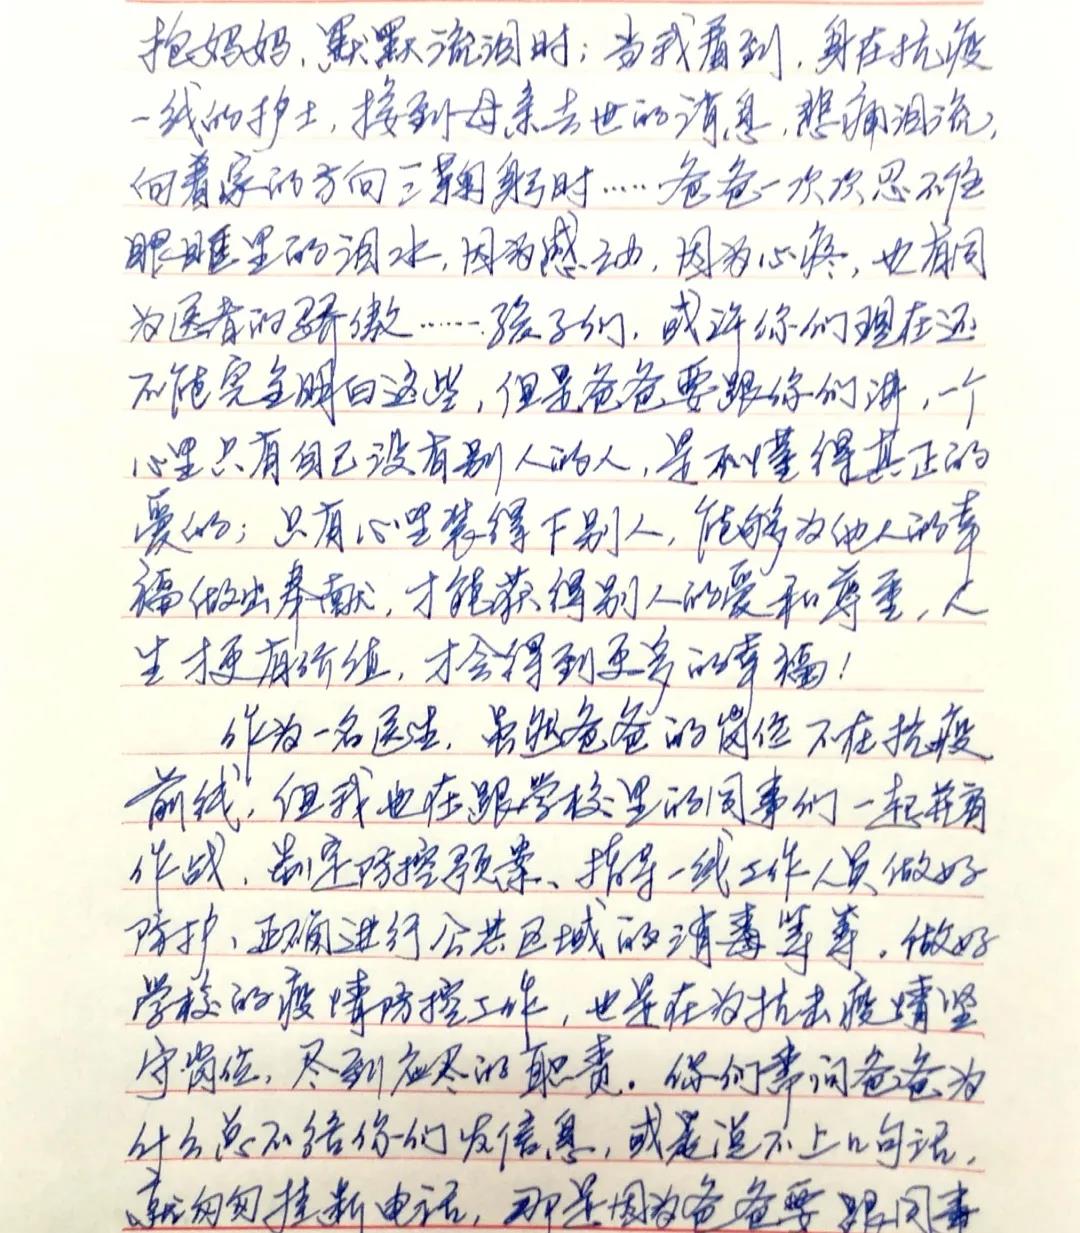 抱妈妈，默默流泪时；当我看到，身在抗疫
一线的护士，接到母亲去世的消息，悲痛泪流，
向着家的方向三鞠躬时……爸爸一次次忍不住
眼眶里的泪水，因为感动，因为心疼，也有同
为医者的骄傲……孩子们，或许你们现在还
不能完全明白这些，但是爸爸要跟你们讲，一个
心里只有自己没有别人的人，是不懂得真正的
爱的；只有心里装得下别人，能够为他人的幸
福做出奉献，才能获得别人的爱和尊重，人
生才更有价值，才会得到更多的幸福！
作为一名医生，虽然爸爸的岗位不在抗疫
前线，但我也在跟学校里的同事们一起并肩
作战，制定防控预案、指导一线工作人员做好
防护、正确进行公共区域的消毒等等。做好
学校的疫情防控工作，也是在为抗击疫情坚
守岗位，尽到应尽的职责。你们常问爸爸为
什么总不给你们发信息，或是说不上几句话，
就匆匆挂断电话，那是因为爸爸要跟同事